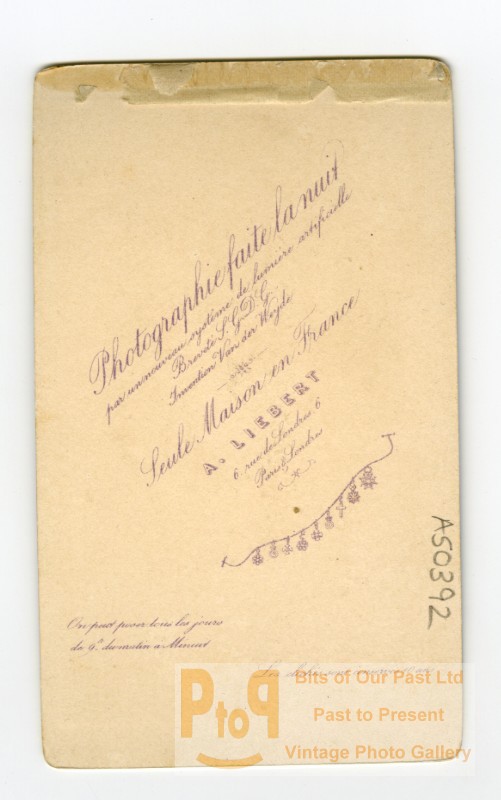 Photographie faite la nuit
par un nouveau système de lumière artificielle
Breveté S. G. D. G.
Invention Van der Weyde
Seule Maison en France
A. LIEBERT
6 rue de Londres 6
Paris & Londres
On peut poser tous les jours
de 9h du matin à Minuit
A50392
PtoP
Bits of Our Past Ltd
Past to Present
Vintage Photo Gallery